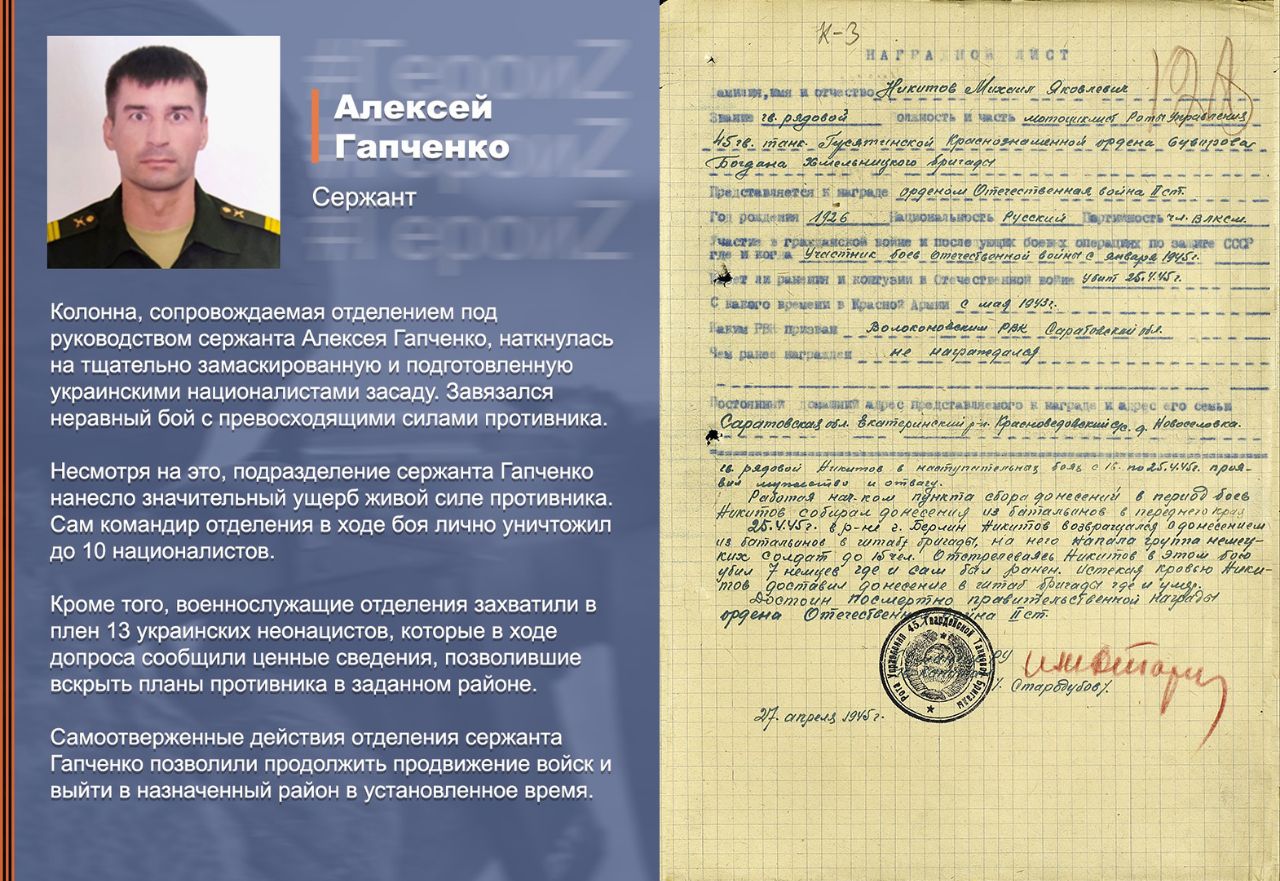 #ГероиZ
#ГероиZ
#ГероиZ
Алексей
Гапченко
Сержант
Колонна, сопровождаемая отделением под
руководством сержанта Алексея Гапченко, наткнулась
на тщательно замаскированную и подготовленную
украинскими националистами засаду. Завязался
неравный бой с превосходящими силами противника.
Несмотря на это, подразделение сержанта Гапченко
нанесло значительный ущерб живой силе противника.
Сам командир отделения в ходе боя лично уничтожил
до 10 националистов.
Кроме того, военнослужащие отделения захватили в
плен 13 украинских неонацистов, которые в ходе
допроса сообщили ценные сведения, позволившие
вскрыть планы противника в заданном районе.
Самоотверженные действия отделения сержанта
Гапченко позволили продолжить продвижение войск и
выйти в назначенный район в установленное время.
К-3
НАГРАДНОЙ ЛИСТ
амилия, имя и отчество Никитов Михаил Яковлевич
Звание гв. рядовой олжность и часть мотоциклист Роты Управления
45 гв. танк. Гусятинской Краснознаменной ордена Суворова
Богдана Хмельницкого бригады
Представляется к награде орденом Отечественная война II ст.
Год рождения 1926 Национальность Русский Партийность чл. ВЛКСМ.
Участие в гражданской войне и последующих боевых операциях по защите СССР
где и когда Участник боев Отечественной войны с января 1945г.
Имеет ли ранения и контузии в Отечественной войне убит 25.4.45г.
С какого времени в Красной Армии с мая 1943г.
Каким РВК призван Волоконовским РВК Саратовский обл.
Чем ранее награжден не награждался
Постоянный домашний адрес представляемого к награде и адрес его семьи
Саратовская обл. Екатеринский р-н. Красноведовский с/с. д. Новоселовка.
гв. рядовой Никитов в наступательных боях с 16 по 25.4.45г. проя-
вил мужество и отвагу.
Работая нач-ком пункта сбора донесений в период боев
Никитов собирал донесения из батальонов в переднего края
25.4.45г. в р-не г. Берлин Никитов возвращался с донесением
из батальонов в штаб бригады, на него напала группа немец-
ких солдат до 15 чел. Отстреливаясь Никитов в этом бою
убил 7 немцев где и сам был ранен. Истекая кровью Ники-
тов доставил донесение в штаб бригады где и умер.
Достоин посмертно правительственной награды
ордена Отечественная война II ст.
Рота Управления 45 Гвардейской Танковой Бригады
/Стародубов/.
27. апреля 1945г.